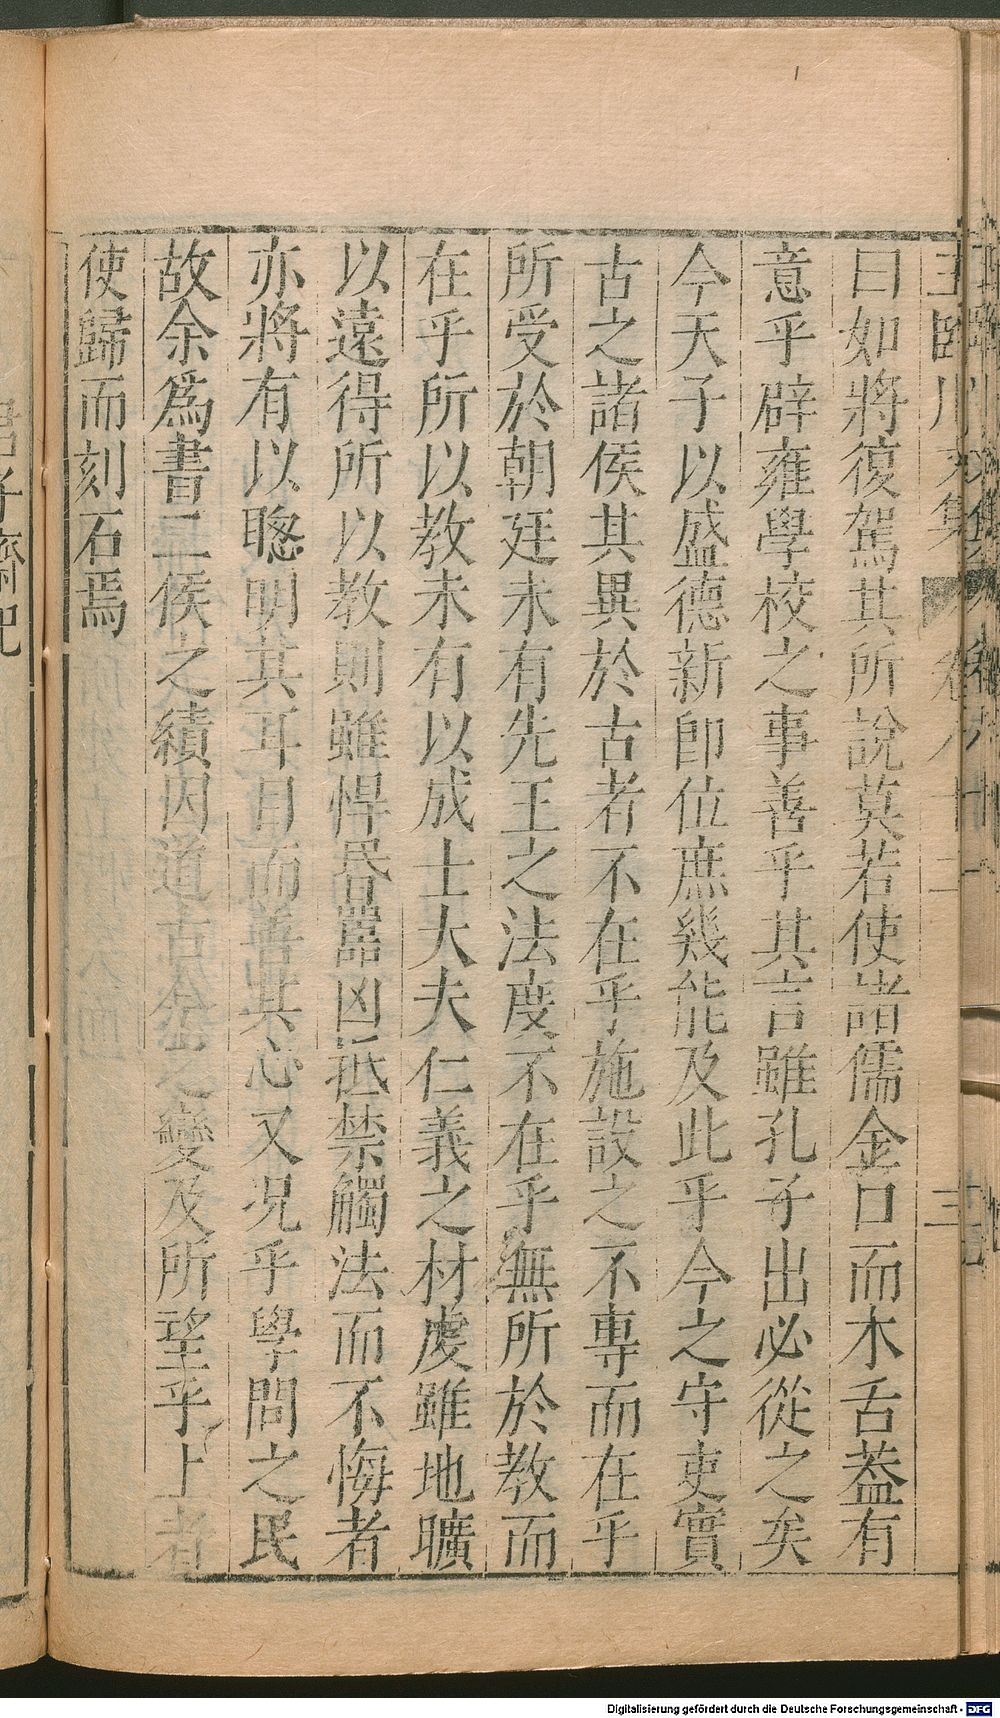 曰如將復駕其所說莫若使諸儒金口而木舌葢有
意乎辟雍學校之事善乎其言雖孔子出必從之矣
今天子以盛德新即位庶幾能及此乎今之守吏實
古之諸侯其異於古者不在乎施設之不專而在乎
所受於朝廷未有先王之法度不在乎無所於教而
在乎所以教未有以成士大夫仁義之材虔雖地曠
以遠得所以教則雖悍昬嚚凶抵禁觸法而不悔者
亦將有以聰明其耳目而善其心又况乎學問之民
故余爲書二侯之績因道古今之變及所望乎上者
使歸而刻石焉
三
君子齋記
Digitalisierung gefördert durch die Deutsche Forschungsgemeinschaft - DFG